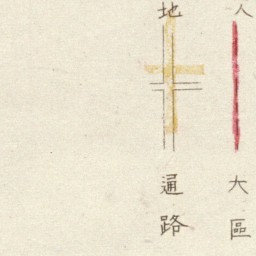 人
大區
地
通路